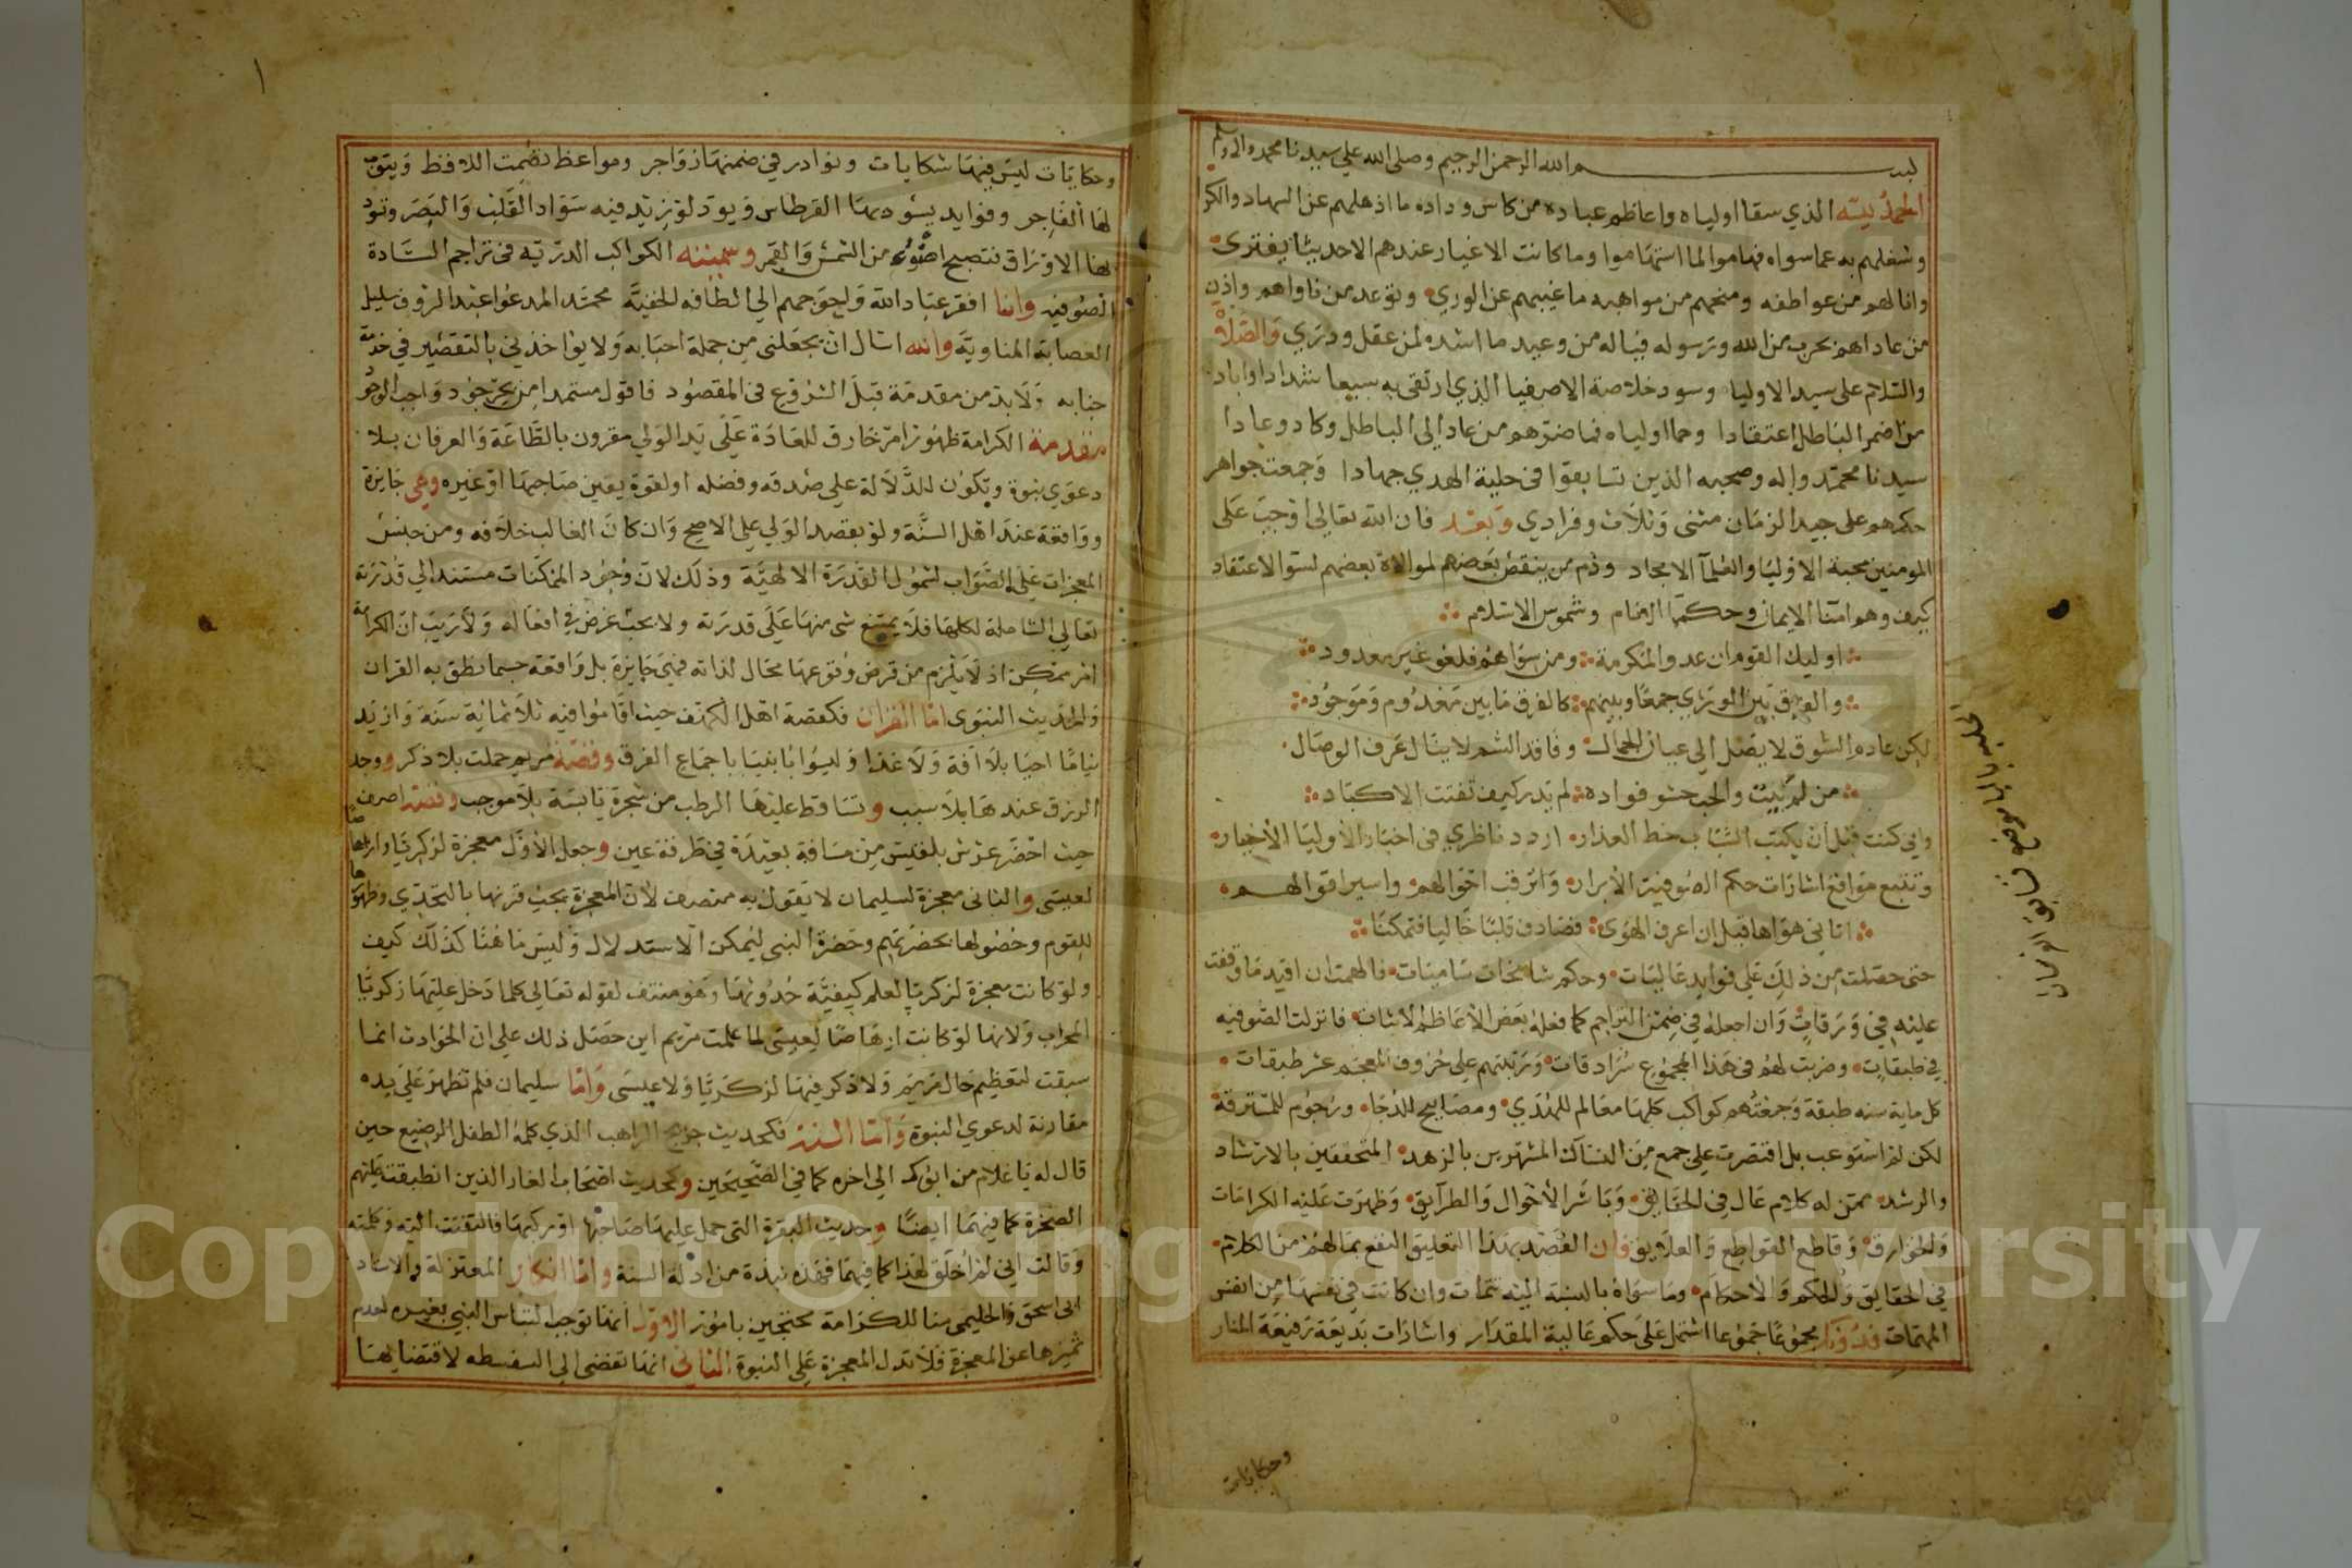 بسم الله الرحمن الرحيم وصلى الله على سيدنا محمد واله وسلم
الحمد لله الذي سقا اولياه واعاظم عباده من كاس وداده ما اذهلهم عن السهاد والكرا
وشغلهم به عما سواه فهاموا لما استهاموا وما كانت الاغيار عندهم الا حديثا يفترى
وانالهم من عواطفه ومنحهم من مواهبه ما غيبهم عن الوري وتوعد من ناواهم واذن
من عاداهم بحرب من الله ورسوله فياله من وعيد ما اشده لمن عقل ودري والصلاة
والسلام على سيد الاوليا وسود خلاصة الاصفيا الذي ارتقى به سبعا شدادا واباد
من اضمر الباطل اعتقادا وحما اولياه فما ضرهم من عاد الى الباطل وكاد وعادا
سيدنا محمد واله وصحبه الذين تسابقوا في حلبة الهدي جهادا وجمعت جواهر
حكمهم على جيد الزمان مثنى وثلاث وفرادي وبعد فان الله تعالى اوجب على
المومنين محبة الاوليا والعلمآ الامجاد وذم من ينقص بعضهم لموالاة بعضهم لسو الاعتقاد
كيف وهم امنآ الايمان وحكمآ الانام وشموس الاسلام
اوليك القوم ان عدوا المكرمة ومن سواهم فلغو غير معدود
والفرق بين الورى جمعا وبينهم كالفرق ما بين معدوم وموجود
لكن عادم الشوق لا يصل الى عيان الجمال وفاقد الشم لا ينال عرف الوصال
من لم يبت والحب حشو فواده لم يدر كيف تفتت الاكباد
واني كنت قبل ان يكتب الشباب خط العذار اردد ناظري في اخبار الاوليا الاخيار
وتتبع مواقع اشارات حكم الصوفية الابرار واترقب احوالهم واسير اقوالهم
اتاني هواها قبل ان اعرف الهوى فصادف قلبا خاليا فتمكنا
حتى حصلت من ذلك على فوايد عاليات وحكم شامخات ساميات فالهمت ان اقيد ما وقفت
عليه في ورقات وان اجعله في ضمن التراجم كما فعله بعض الاعاظم الاثبات فانزلت الصوفيه
في طبقات وضربت لهم في هذا المجموع سرادقات ورتبتهم على حروف المعجم عشر طبقات
كل ماية سنه طبقة وجمعتهم كواكب كلها معالم للهدي ومصابيح للدجا ورجوم للمسترقة
لكن لم استوعب بل اقتصرت على جمع من النساك المشتهرين بالزهد المتحققين بالارشاد
والرشد ممن له كلام عال في الحقايق وباشر الاحوال والطرايق وظهرت عليه الكرامات
والخوارق وقاطع القواطع والعلايق وان القصد بهذا التعليق النفع بما لهم من الكلام
في الحقايق والحكم والاحكام وما سواه بالنسبة اليه تتمات وان كانت في نفسها من انفس
المهمات فدونك مجموعا جموعا اشتمل على حكم عالية المقدار واشارات بديعة رفيعة المنار
وحكايات
وحكايات ليس فيها شكايات ونوادر في ضمنها زواجر ومواعظ
لها الفاجر وفوايد يسود بها القرطاس ويود لو زيد فيه سواد القلب والبصر وتنود
بها الاوراق فتصبح اضوء من الشمس والقمر وسميته الكواكب الدريه في تراجم السادة
الصوفيه وانا افقر عباد الله واحوجهم الى الطافه الخفيه محمد المدعوا عبد الرؤف سليل
العصابة المناوية والله اسال ان يجعلني من جملة احبابه ولا يواخذني بالتقصير في خدمة
جنابه ولا بد من مقدمة قبل الشروع في المقصود فاقول مستمدا من بحر جود واجب الوجود
مقدمة الكرامة ظهور امر خارق للعادة على يد الولي مقرون بالطاعة والعرفان بلا
دعوي نبوة وتكون للدلالة على صدقه وفضله او لقوة يقين صاحبها او غيره وهى جايزة
وواقعة عند اهل السنة ولو بقصد الولي على الاصح وان كان الغالب خلافه ومن جنس
المعجزات على الصواب لشمول القدرة الالهية وذلك لان وجود الممكنات مستند الي قدرته
تعالى الشاملة لكلها فلا يمتنع شى منها على قدرته ولا يجب غرض في افعاله ولا ريب ان الكرامة
امر ممكن اذ لا يلزم من فرض وقوعها محال لذاته فهي جايزة بل واقعة حسبما نطق به القران
والحديث النبوى اما القران فكقصة اهل الكهف حيث اقاموا فيه ثلاثماية سنة وازيد
نياما احيا بلا افة ولا غذا وليسوا بانبيا باجماع الفرق وقصة مريم حملت بلا ذكر ووجد
الرزق عندها بلا سبب وتساقط عليها الرطب من شجرة يابسة بلا موجب وقصة اصف
حيث احضر عرش بلقيس من مسافة بعيدة في طرفة عين وجعل الاول معجزة لزكريا وارهاصا
لعيسى والثانى معجزة لسليمان لا يقول به منصف لان المعجزة يجب قرنها بالتحدي وظهورها
للقوم وحصولها بحضرتهم وحضرة النبي ليمكن الاستدلال وليس ما هنا كذلك كيف
ولو كانت معجزة لزكريا لعلم كيفية حدوثها وهو منتف لقوله تعالى كلما دخل عليها زكريا
المحراب ولانها لو كانت ارهاصا لعيسى لما علمت مريم اين حصل ذلك على ان الخوادث انما
سيقت لتعظيم حال مريم ولا ذكر فيها لزكريا ولا عيسى واما سليمان فلم تظهر على يده
مقارنة لدعوي النبوة واما السنة فكحديث جريج الراهب الذي كلمه الطفل الرضيع حين
قال له يا غلام من ابوك الي اخره كما في الصحيحين وكحديث اصحاب الغار الذين انطبقت عليهم
الصخرة كما فيهما ايضا وحديث البقرة التى حمل عليها صاحبها او ركبها فالتفتت اليه وكلمته
وقالت اني لم اخلق لهذا كما فيهما فهذه نبذة من ادلة السنة واما انكار المعتزلة والاستاد
ابى اسحق والحليمى منا للكرامة محتجين بامور الاول انها توجب التباس النبي بغيره لعدم
تميزها عن المعجزة فلا تدل المعجزة على النبوة الثانى انها تفضى الى السفسطه لاقتضايها
Copyright © King Saud University